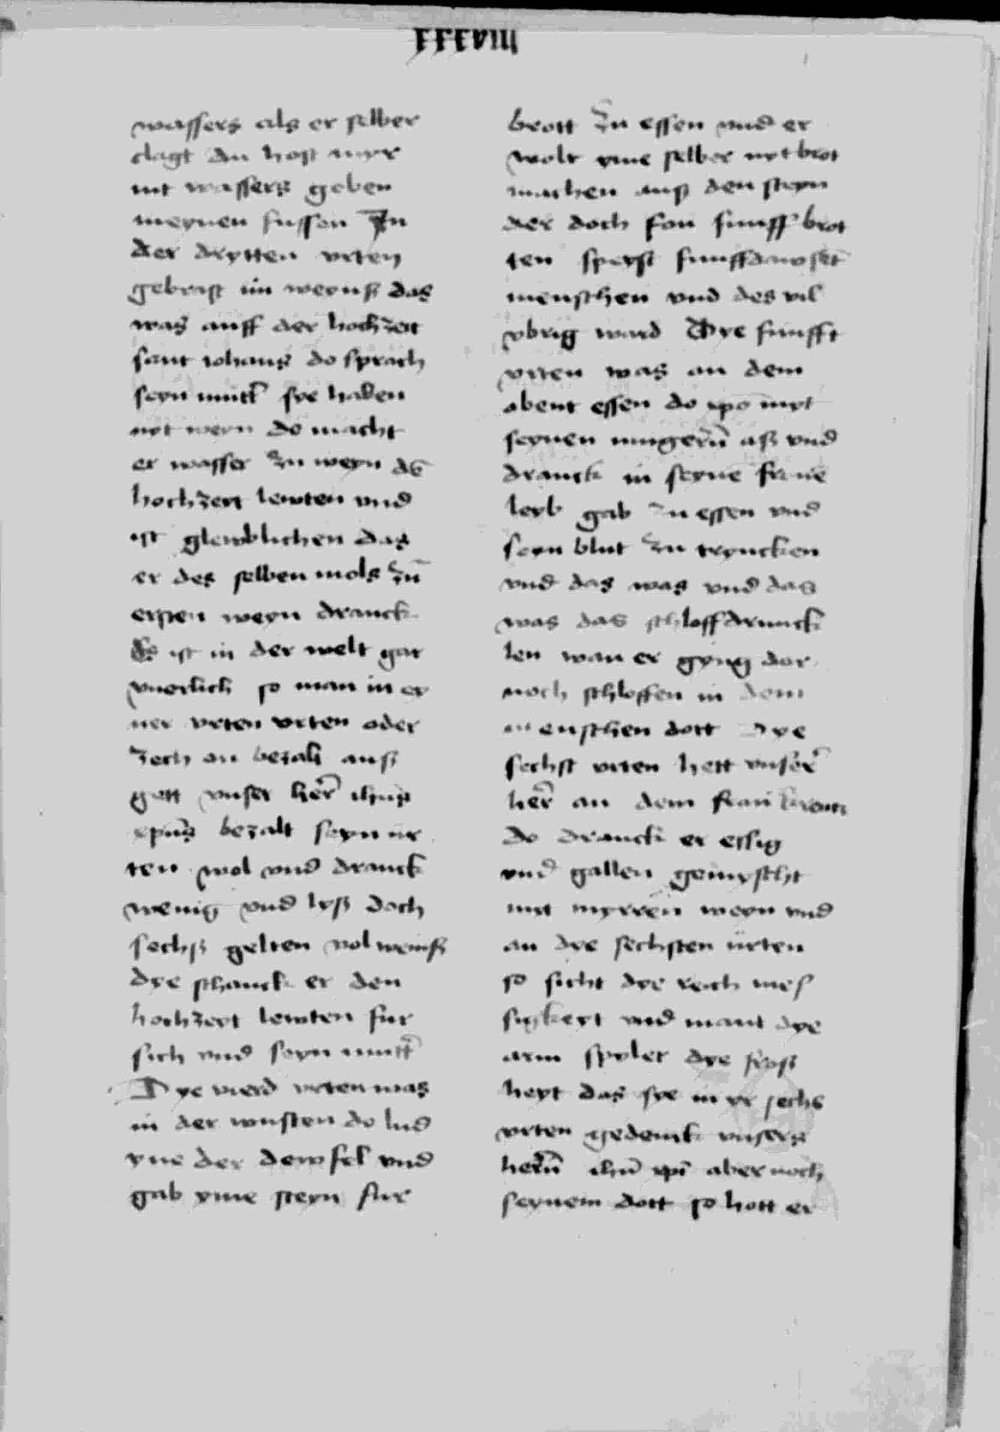 xxxviii
wassers als er selber
clagt du host myr
nit wassers geben
meynen fussen In
der drytten vrten
gebrast im weynß das
was auff der hochzeit
sant iohans do sprach
seyn mutt' sye haben
nyt weyn do macht
er wasser zu weyn dē
hochzeyt lewten vnd
ist glewblichen das
er des selben mols zū
ersten weyn dranck
Es ist in der welt gar
vnerlich so man in ey
ner vrten vrten oder
zech on bezalt auß
gett vnser her' ihūs
xpūs bezalt seyn ur
ten wol vnd dranck
wenig vnd lyß doch
sechß gelten vol weinß
dye schanck er den
hochzeyt lewten fur
sich vnd seyn mutt'
Dye vierd vrten was
in der wusten do lud
yne der dewfel vnd
gab yme steyn fur
brott zu essen vnd er
wolt yme selber nyt brot
machen auß den steyn
der doch fon funff brot
ten speyst funffdawsēt
menschen vnd des vil
vbrig ward Dye funfft
vrten was an dem
obent essen do xpō myt
seynen iungern̄ aß vnd
dranck in seynē
leyb gab zu essen vnd
seyn blut zu tryncken
vnd das was vnd das
was das schloffdrunck
len wan er gyng dar
noch schloffen in dem
menschen dott Dye
sechst vrten hett vnser'
her' an dem kreutz
do dranck er essig
vnd gallen gemyscht
mit myrren weyn vnd
an dye sechsten urten
so sicht dye reich mes
sigkeyt vnd mant dye
arm spyler dye froß
heyt das sye in yr sechs
vrten gedenck vnsers
hern̄ ihū xpī aber noch
seynem dott so hott er